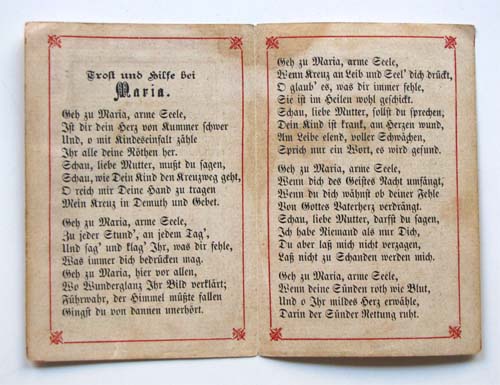 Trost und Hilfe bei
Maria.
Geh zu Maria, arme Seele,
Ist dir dein Herz von Kummer schwer
Und, o mit Kindeseinfalt zähle
Ihr alle deine Nöthen her.
Schau, liebe Mutter, mußt du sagen,
Schau, wie Dein Kind den Kreuzweg geht,
O reich mir Deine Hand zu tragen
Mein Kreuz in Demuth und Gebet.
Geh zu Maria, arme Seele,
Zu jeder Stund', an jedem Tag',
Und sag' und klag' Ihr, was dir fehle,
Was immer dich bedrücken mag.
Geh zu Maria, hier vor allen,
Wo Wunderglanz Ihr Bild verklärt;
Führwahr, der Himmel müßte fallen
Gingst du von dannen unerhört.
Geh zu Maria, arme Seele,
Wenn Kreuz an Leib und Seel' dich drückt,
O glaub' es, was dir immer fehle,
Sie ist im Heilen wohl geschickt.
Schau, liebe Mutter, sollst du sprechen,
Dein Kind ist krank, am Herzen wund,
Am Leibe elend, voller Schwächen,
Sprich nur ein Wort, es wird gesund.
Geh zu Maria, arme Seele,
Wenn dich des Geistes Nacht umfängt,
Wenn du dich wähnst ob deiner Fehle
Von Gottes Vaterherz verdrängt.
Schau, liebe Mutter, darfst du sagen,
Ich habe Niemand als nur Dich,
Du aber laß mich nicht verzagen,
Laß nicht zu Schanden werden mich.
Geh zu Maria, arme Seele,
Wenn deine Sünden roth wie Blut,
Und o Ihr mildes Herz erwähle,
Darin der Sünder Rettung ruht.